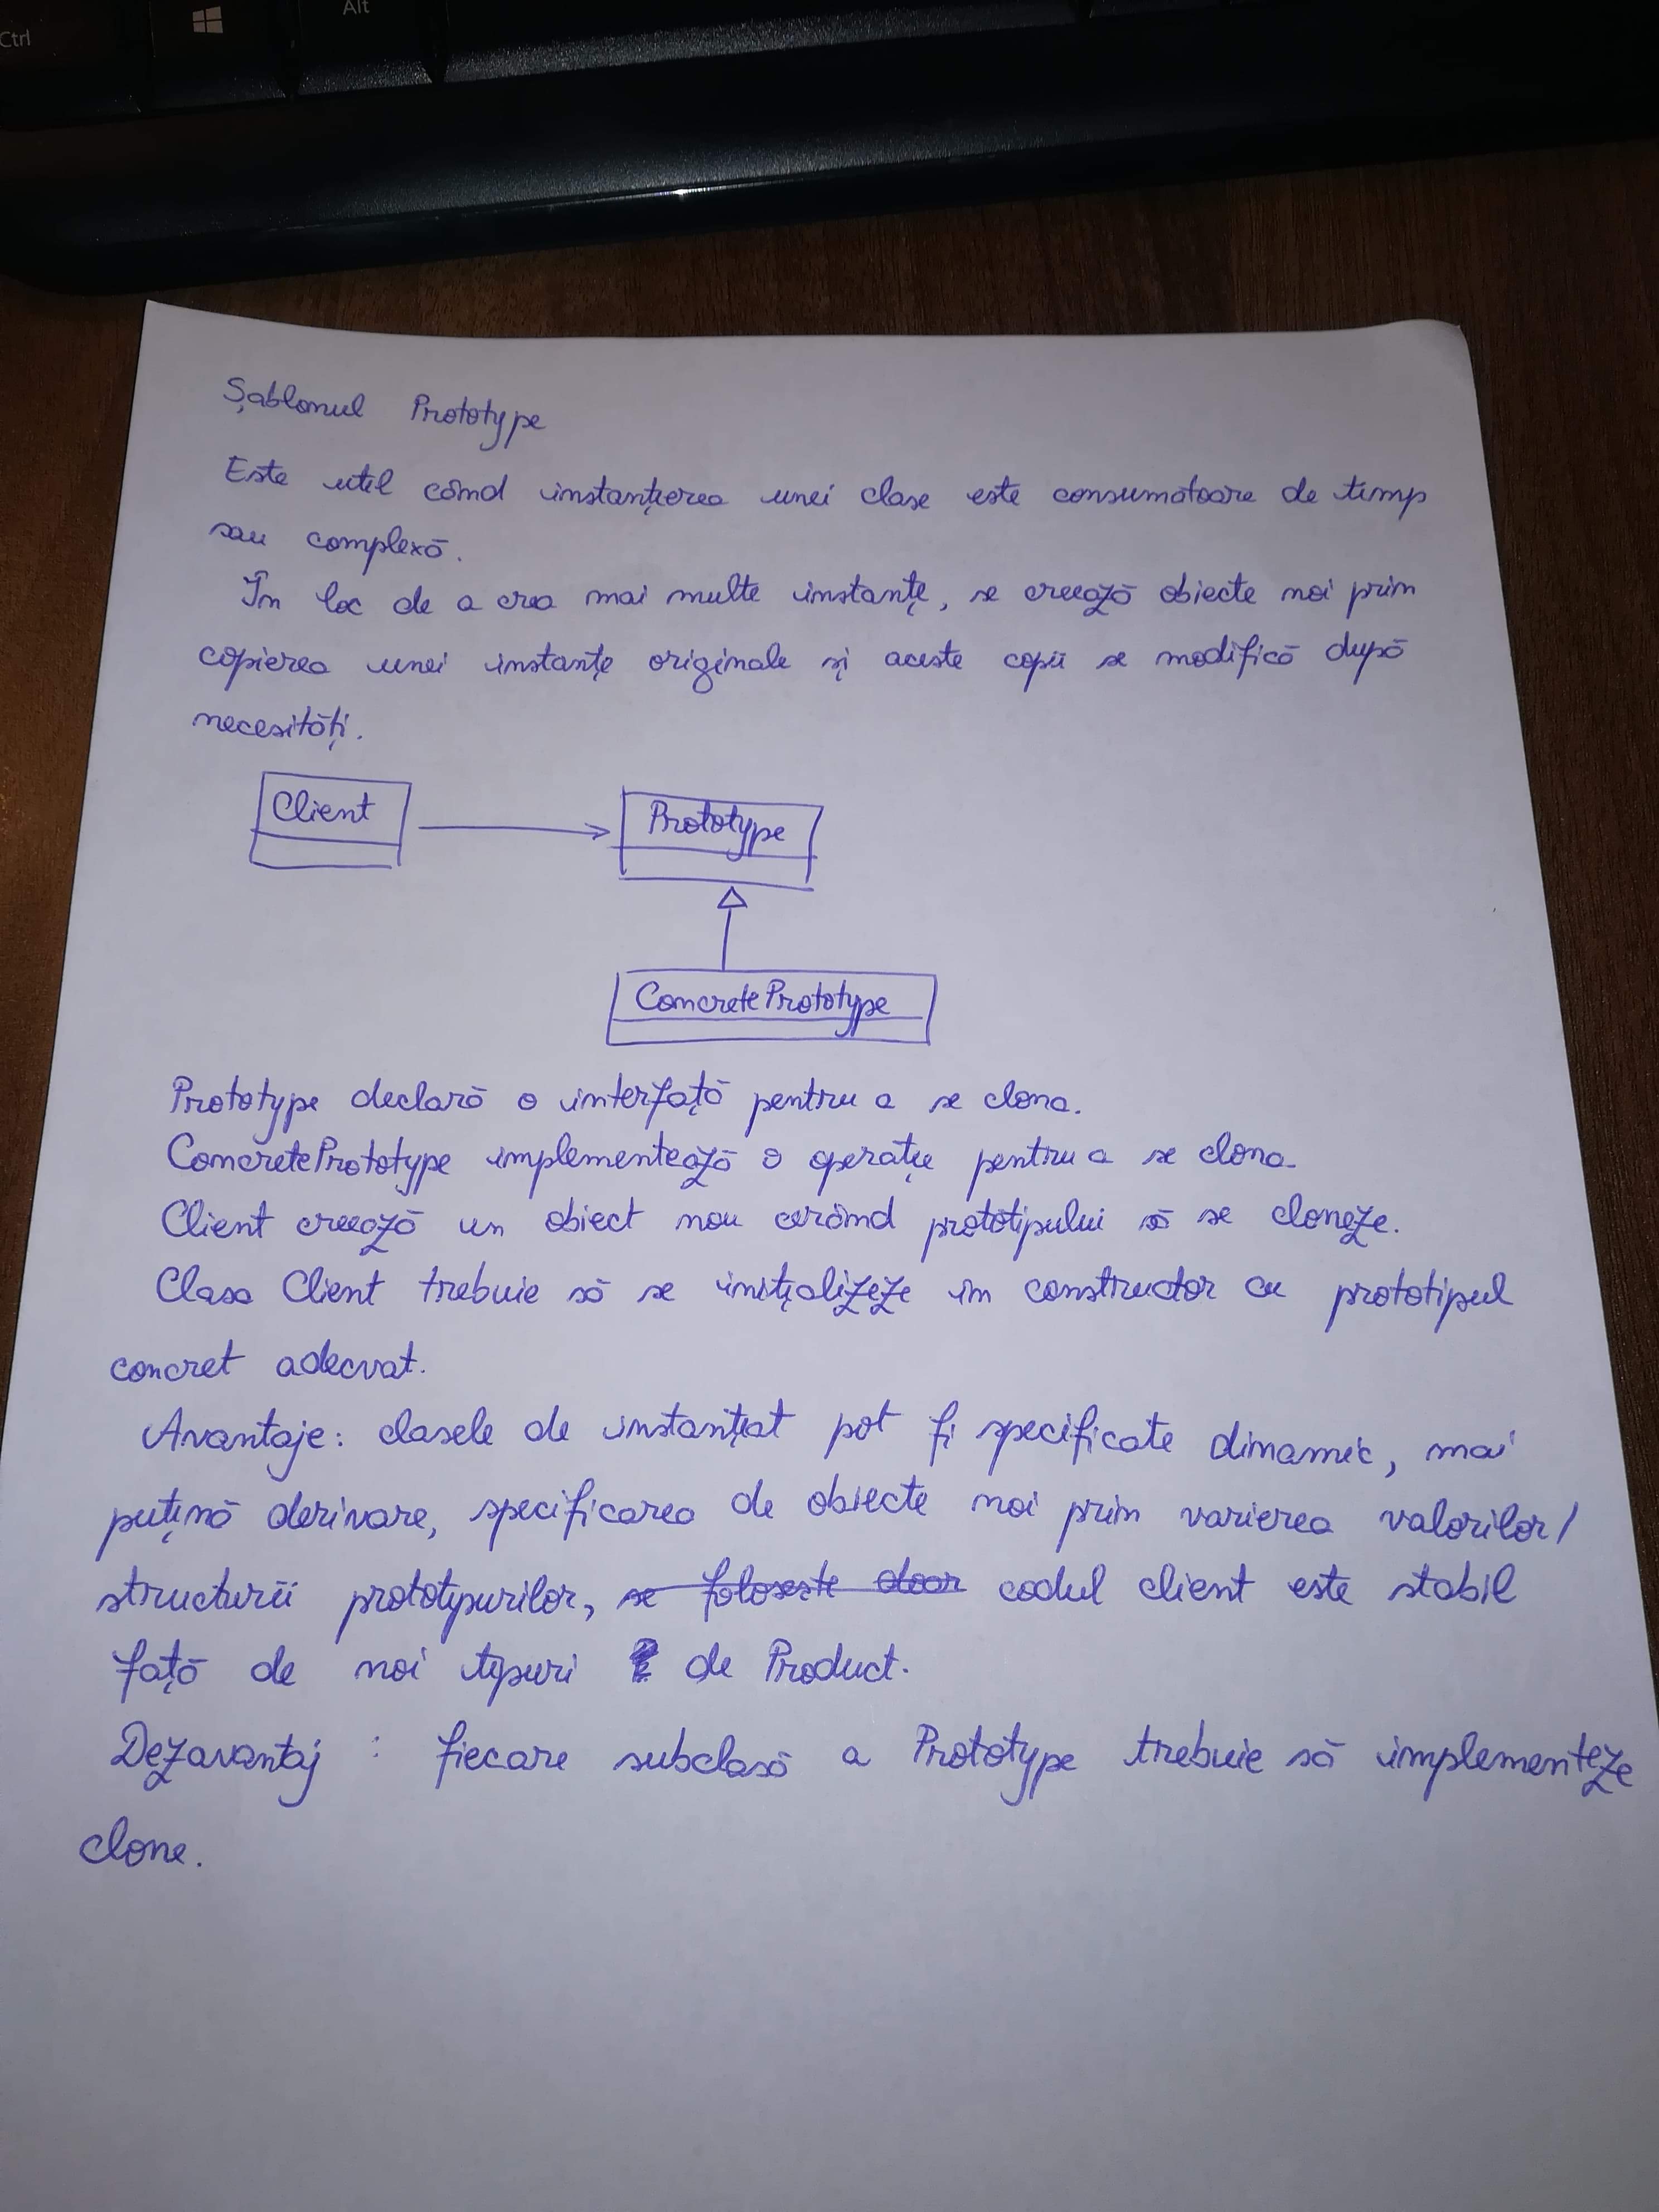 Ctrl
Alt
Șablonul Prototype
Este util când instanțierea unei clase este consumatoare de timp
sau complexă.
În loc de a crea mai multe instanțe, se creează obiecte noi prim
copierea unei instanțe originale și aceste copii se modifică după
necesități.
Client
Prototype
ConcretePrototype
Prototype declară o interfață pentru a se clona.
ConcretePrototype implementează o operație pentru a se clona.
Client creează un obiect nou cerând prototipului să se cloneze.
Clasa Client trebuie să se inițializeze în constructor cu prototipul
concret adecvat.
Avantaje: clasele de instanțiat pot fi specificate dinamic, mai
puțină derivare, specificarea de obiecte noi prim varierea valorilor/
structurii prototypurilor, se folosește doar codul client este stabil
față de noi tipuri de Product.
Dezavantaj : fiecare subclasă a Prototype trebuie să implementeze
clone.